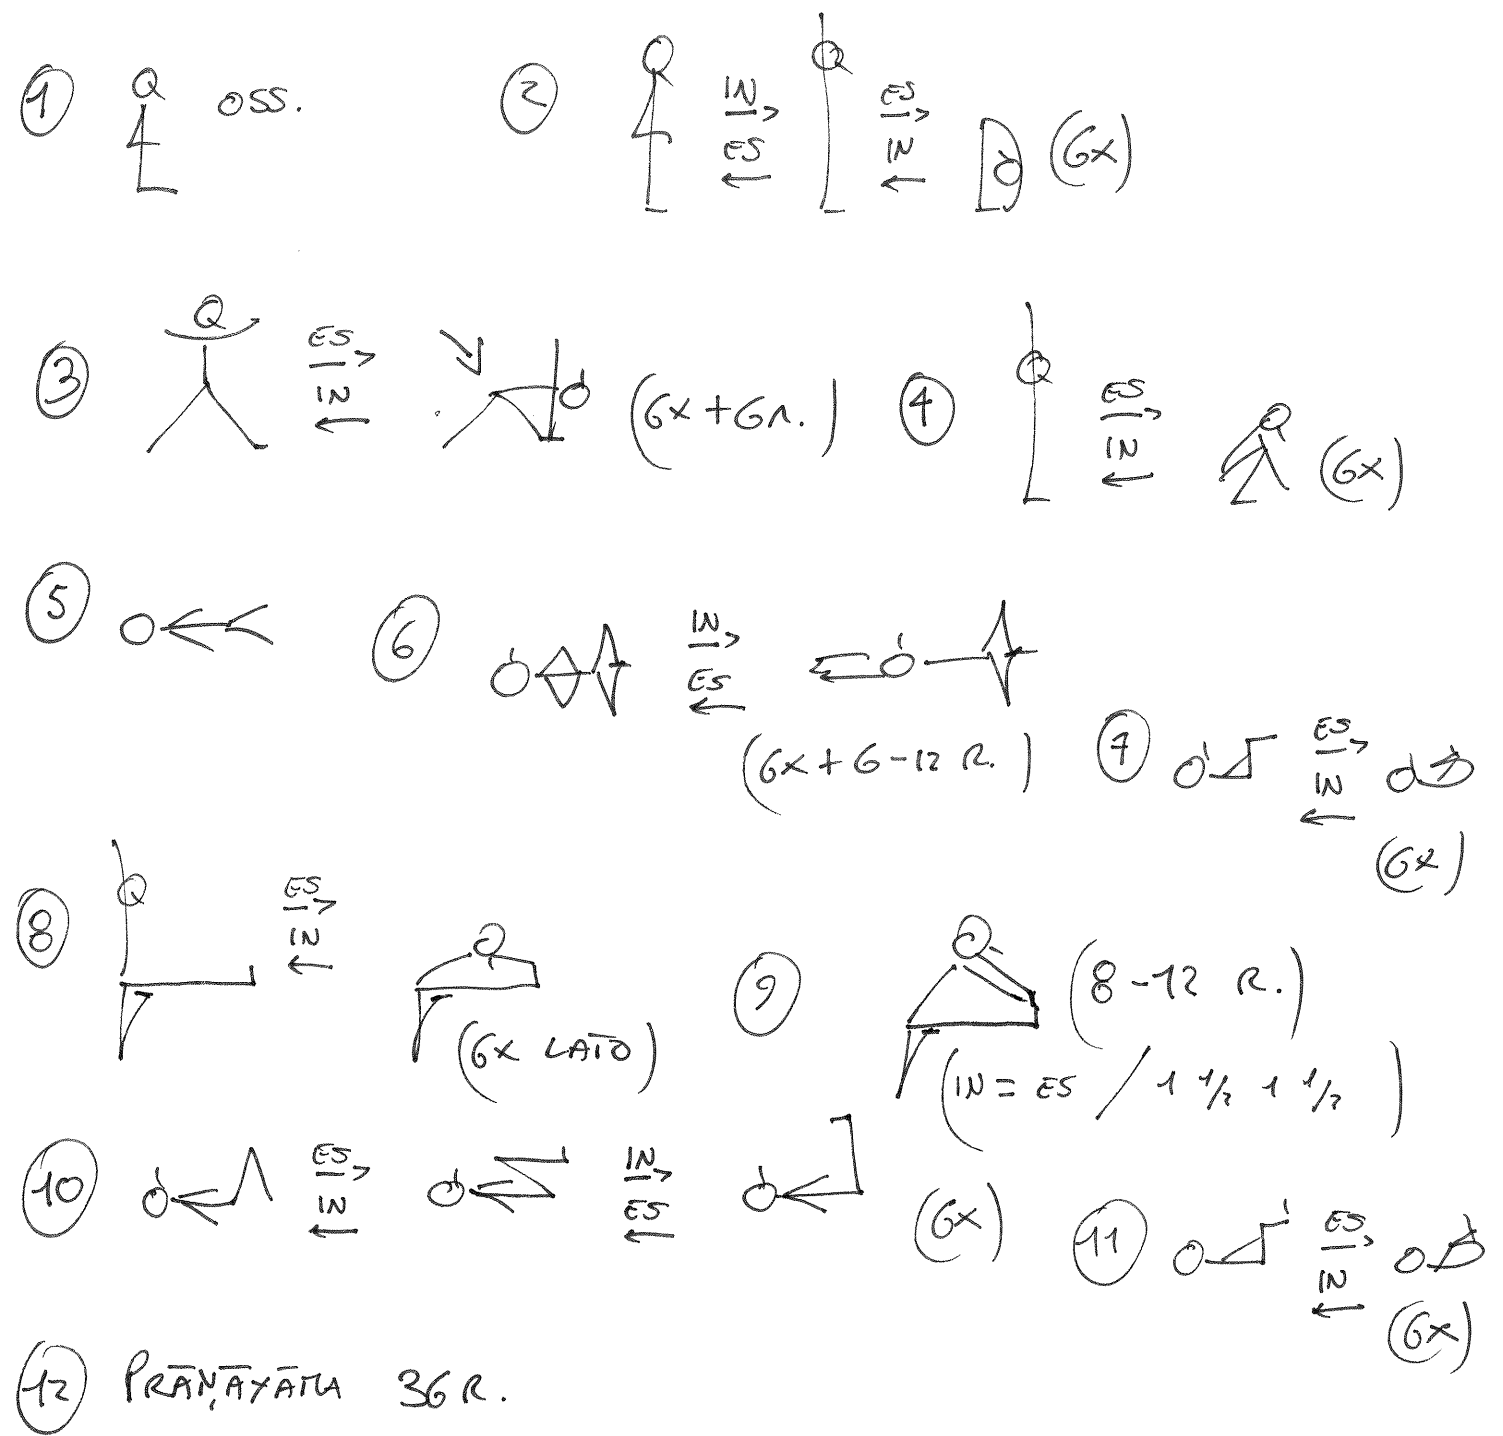 1 OSS.
2 IN ES ES IN (6X)
3 ES IN (6X + 6R.)
4 ES IN (6X)
5
6 IN ES
(6X + 6-12 R.)
7 ES IN
(6X)
8 ES IN
(6X LATO)
9 (8-12 R.)
(IN = ES / 1 1/2 1 1/2)
10 ES IN IN ES
(6X)
11 ES IN
(6X)
12 PRĀṆĀYĀMA 36 R.